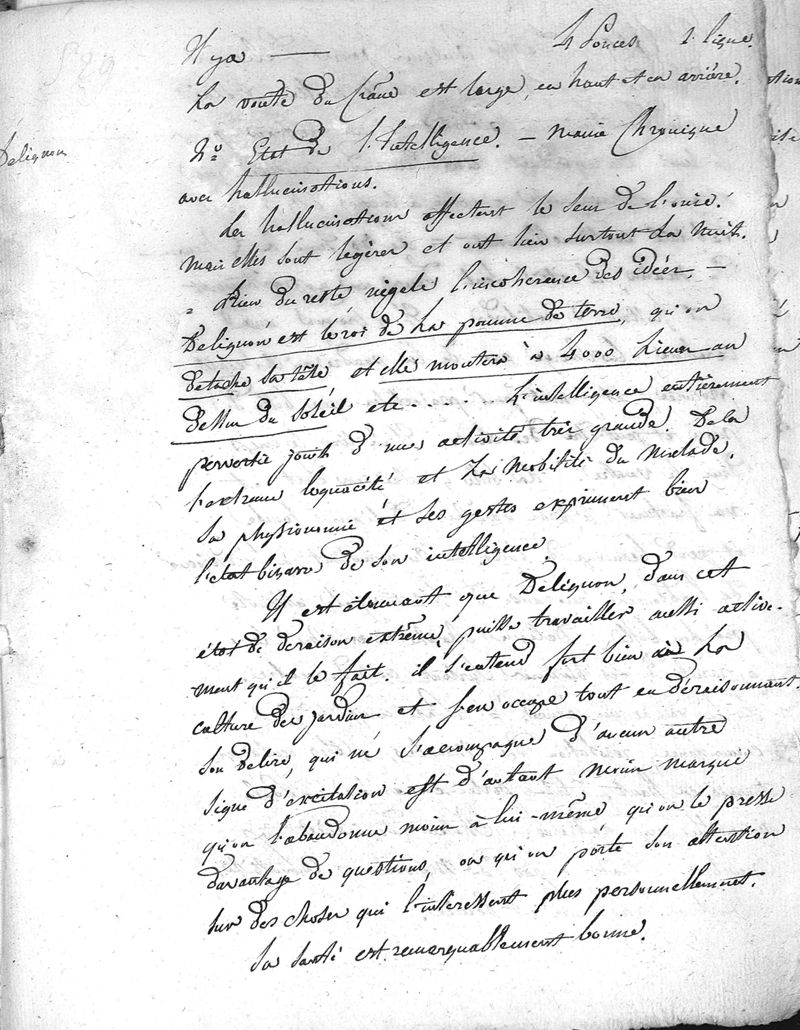 529
Il y a — 4 Pouces 1 ligne.
La voute du Crâne est large, en haut et en arrière.
Delignon
N.º Etat de l'Intelligence. — manie Chronique
avec hallucinations.
Les hallucinations affectent le sens de l'ouie.
mais elles sont légères et ont lieu surtout la nuit.
= Rien du reste n'égale l'incohérence des idées, —
Delignon est le roi de la pomme de terre, qu'on
detache sa tête, et elle montera à 4000 Lieues au
dessus du soleil etc. . . . . L'intelligence entièrement
pervertie jouit d'une activité très grande. De là
l'extreme loquacité et la mobilité du malade.
Sa physionomie et ses gestes expriment bien
l'état bizarre de son intelligence.
Il est étonnant que Delignon, dans cet
état de deraison extrême, puisse travailler aussi active-
ment qu'il le fait. il s'entend fort bien à la
culture des jardins et s'en occupe tout en déraisonnant.
Son délire, qui ne s'accompagne d'aucun autre
signe d'excitation est d'autant moins marqué
qu'on l'abandonne moins à lui-même qu'on le presse
davantage de questions, ou qu'on porte son attention
sur des choses qui l'intéressent plus personnellement.
Sa santé est remarquablement bonne.